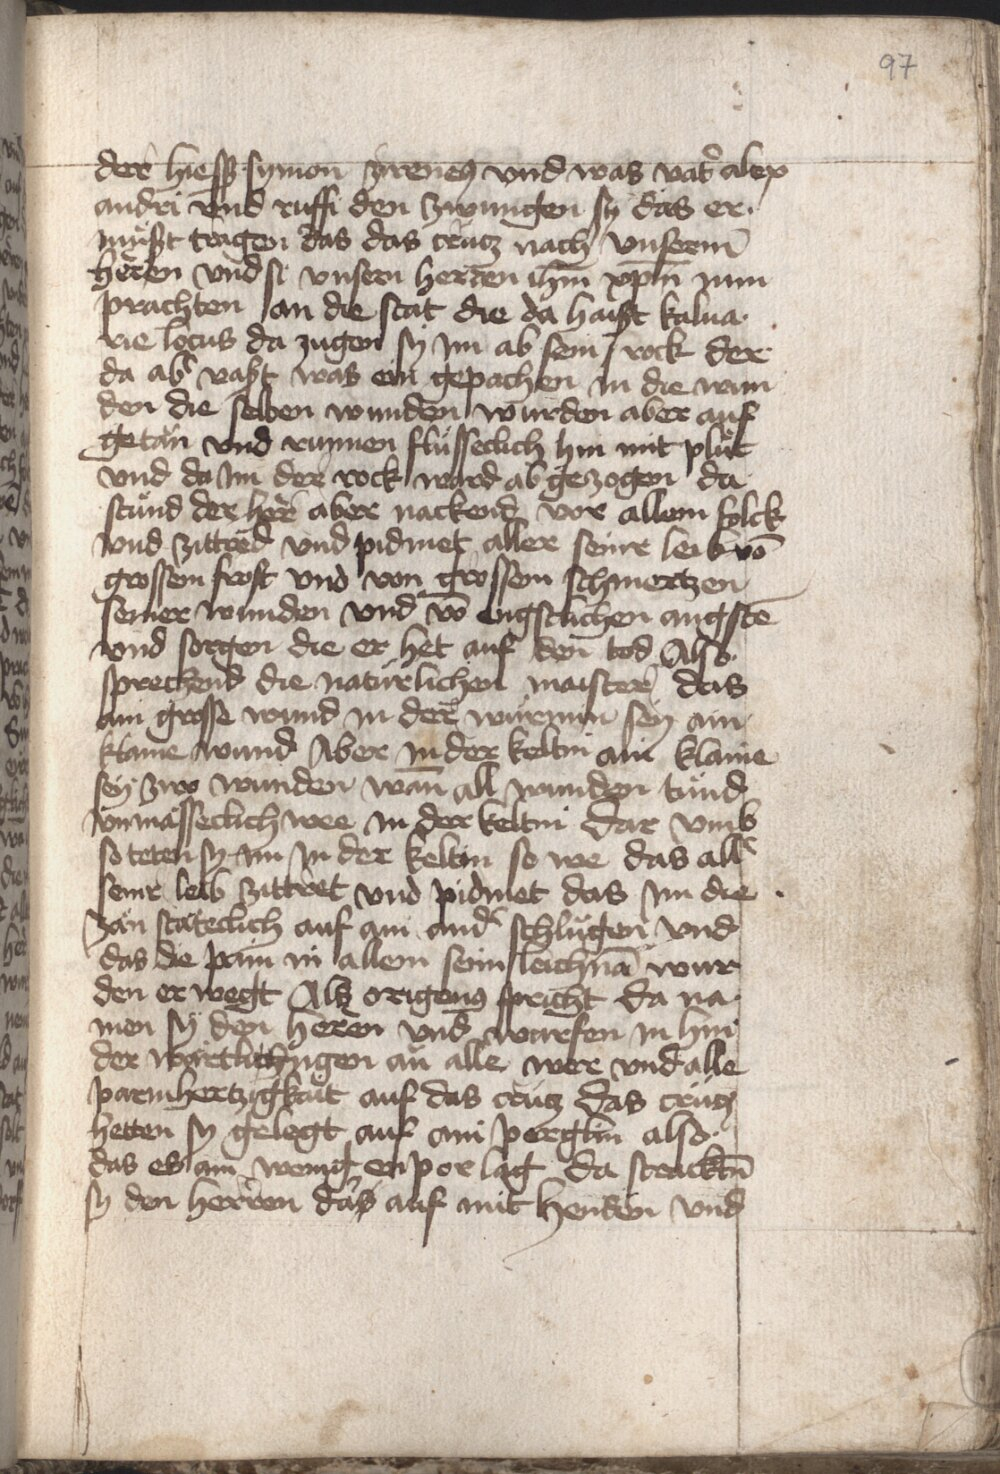 97
der hiess symon zireneus vnd was vatr̄ alex
andri vnd ruffi den zwungen sy das er
müst tragen das das crütz nach vnserm̄
heren vnd si vnsern herren ihm̄ xpm̄ nun
prachten an die stat die da haist kalua
rie locus da zugen sy im ab sein rock der
da ab͛ vast was ein gepachen in die wun
den die selben wunden wurden aber auf
getän vnd runnen flüsseclich hin mit plüt
vnd da im der rock ward ab gezogen da
stünd der herr aber nackend vor allem folck
vnd zittred vnd pidmet aller seinr leib vō
grossem frost vnd von grossem schmertzen
seiner wunden vnd vō engstlichen angstē
vnd sorgen die er het auf den tod Also
sprechend die natürlichen maister das
ain grosse wund in der würmin sey ain
klaine wund Aber in der keltin ain klaine
sey zwo wunden wan̄ all wunden tünd
vnmässeclich wee in der keltin dar vmb
so teten sy im in der keltin so we das all͛
seinr leib zittret vnd pidmet das im die
zän stäteclich auf ain and͛ schlügen vnd
das die pain in allem seim leichnā wur
den er wegt Als origenus spricht da na
men sy den heren vnd wurfen in hin
der wärtlingen an alle wer vnd alle
parmhertzigkait auf das crütz das crütz
hetten sy gelegt auf ain perglin also
das es ain wenig enpor lag da stracktn̄
sy den herren das auf mit henden vnd